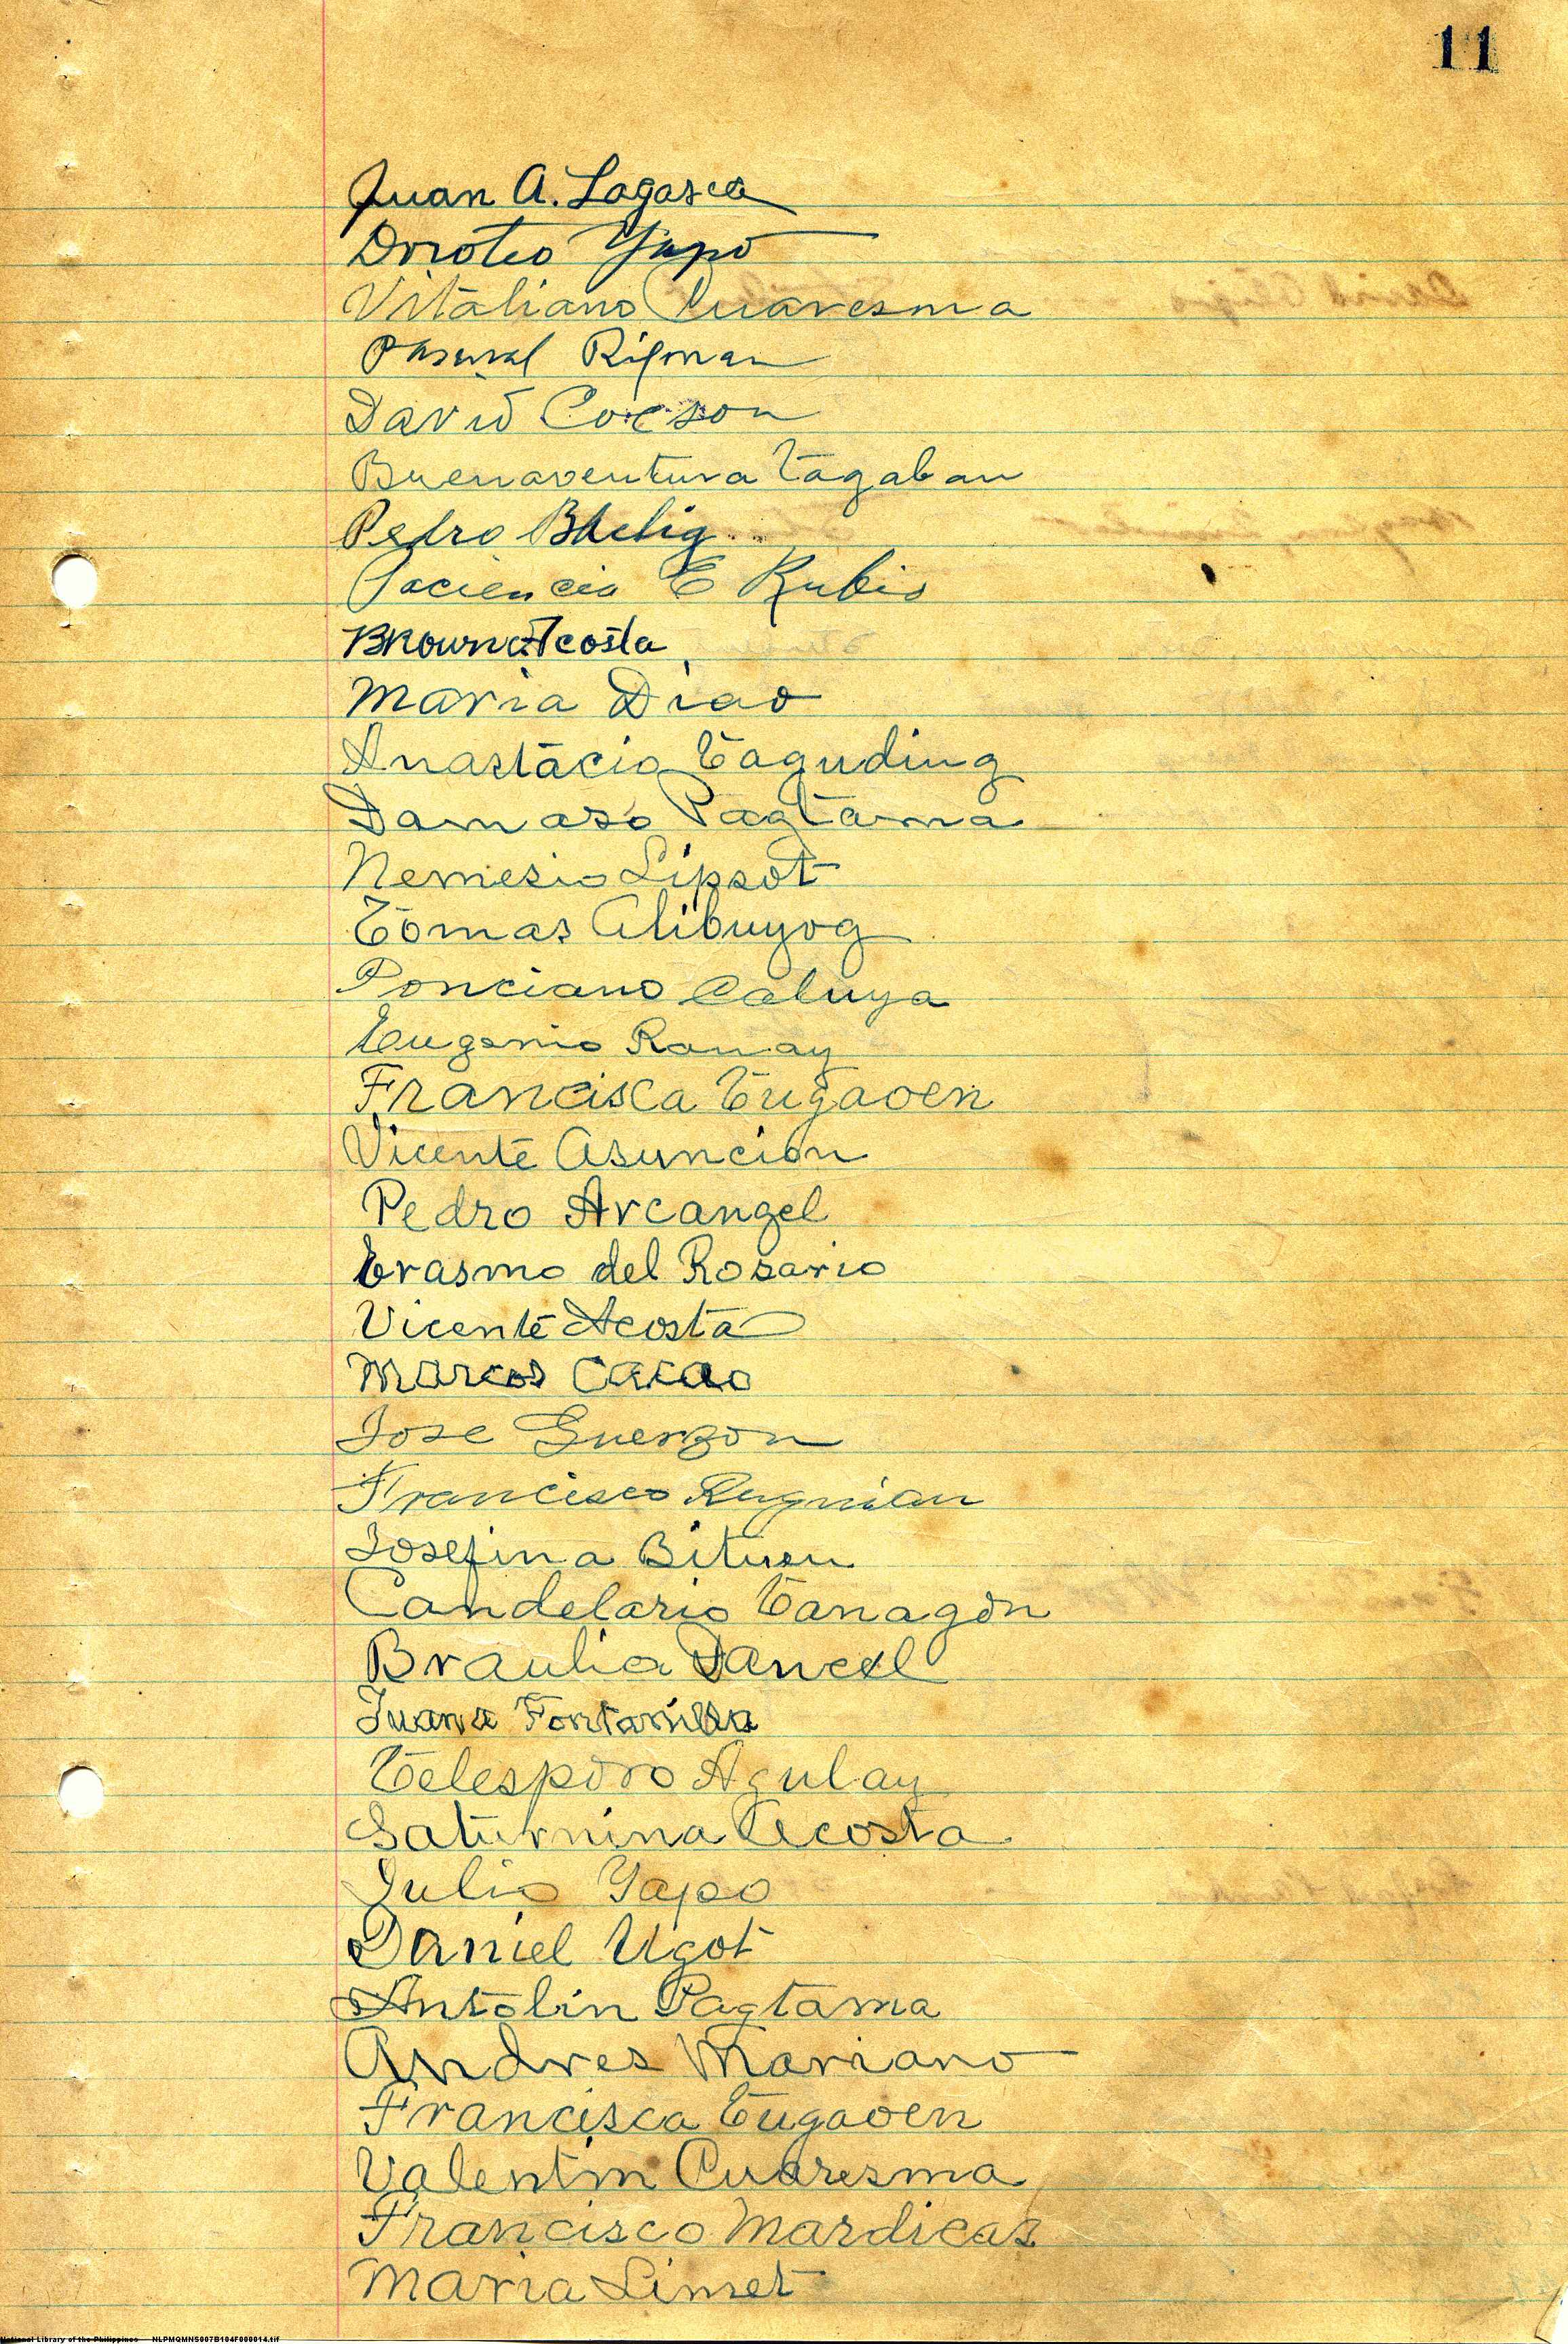 11
Juan A. Lagasca
Doroteo Yapo
Vitaliano Cuaresma
Pascual Rifman
David Cocson
Buenaventura Tagaban
Pedro
Paciencia E Rubio
Brown Acosta
Maria Diao
Anastacio Taguding
Damaso Pagtama
Nemesio Lipsot
Tomas Alibuyog
Ponciano Caluya
Eugenio Ramay
Francisca Tugaoen
Vicente Asuncion
Pedro Arcangel
Erasmo del Rosario
Vicente Acosta
Marcos Cacao
Jose Guerzon
Francisco Rugnian
Josefina Bituen
Candelario Tanagon
Braulia Dancel
Juana Fontanilla
Telesporo Agulay
Saturnina Acosta
Julio Yapo
Daniel Ugot
Antolin Pagtama
Andres Mariano
Francisca Tugaoen
Valentin Cuaresma
Francisco Mardicas
Maria Limset
National Library of the Philippines NLPMQMNS007B104F000014.tif